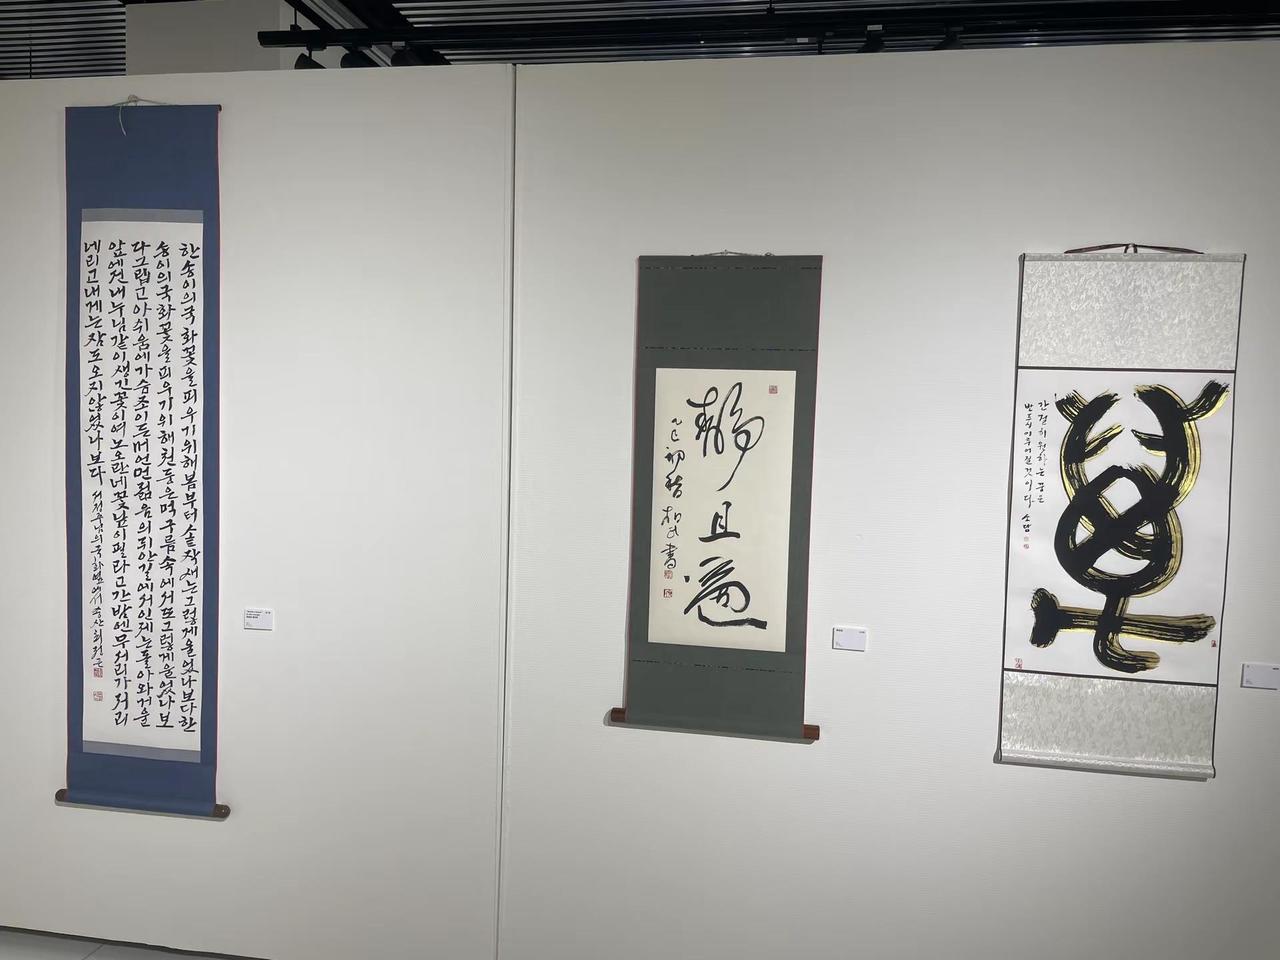 한송이의국화꽃을피우기위해봄부터솥작새는그렇게울었나보다한
송이의국화꽃을피우기위해천둥은먹구름속에서또그렇게울었나보
다그립고아쉬움에가슴조이든머언먼젊음의뒤안길에서인제는돌아와거울
앞에선내누님같이생긴꽃이여노오란네꽃닢이필라고간밤엔무서리가저리
네리고내게는잠도오지않었나보다 서정주님의국화옆에서
靜且
乙巳初秋
書
간절히원하는꿈은
반드시이루어질것이다 소담